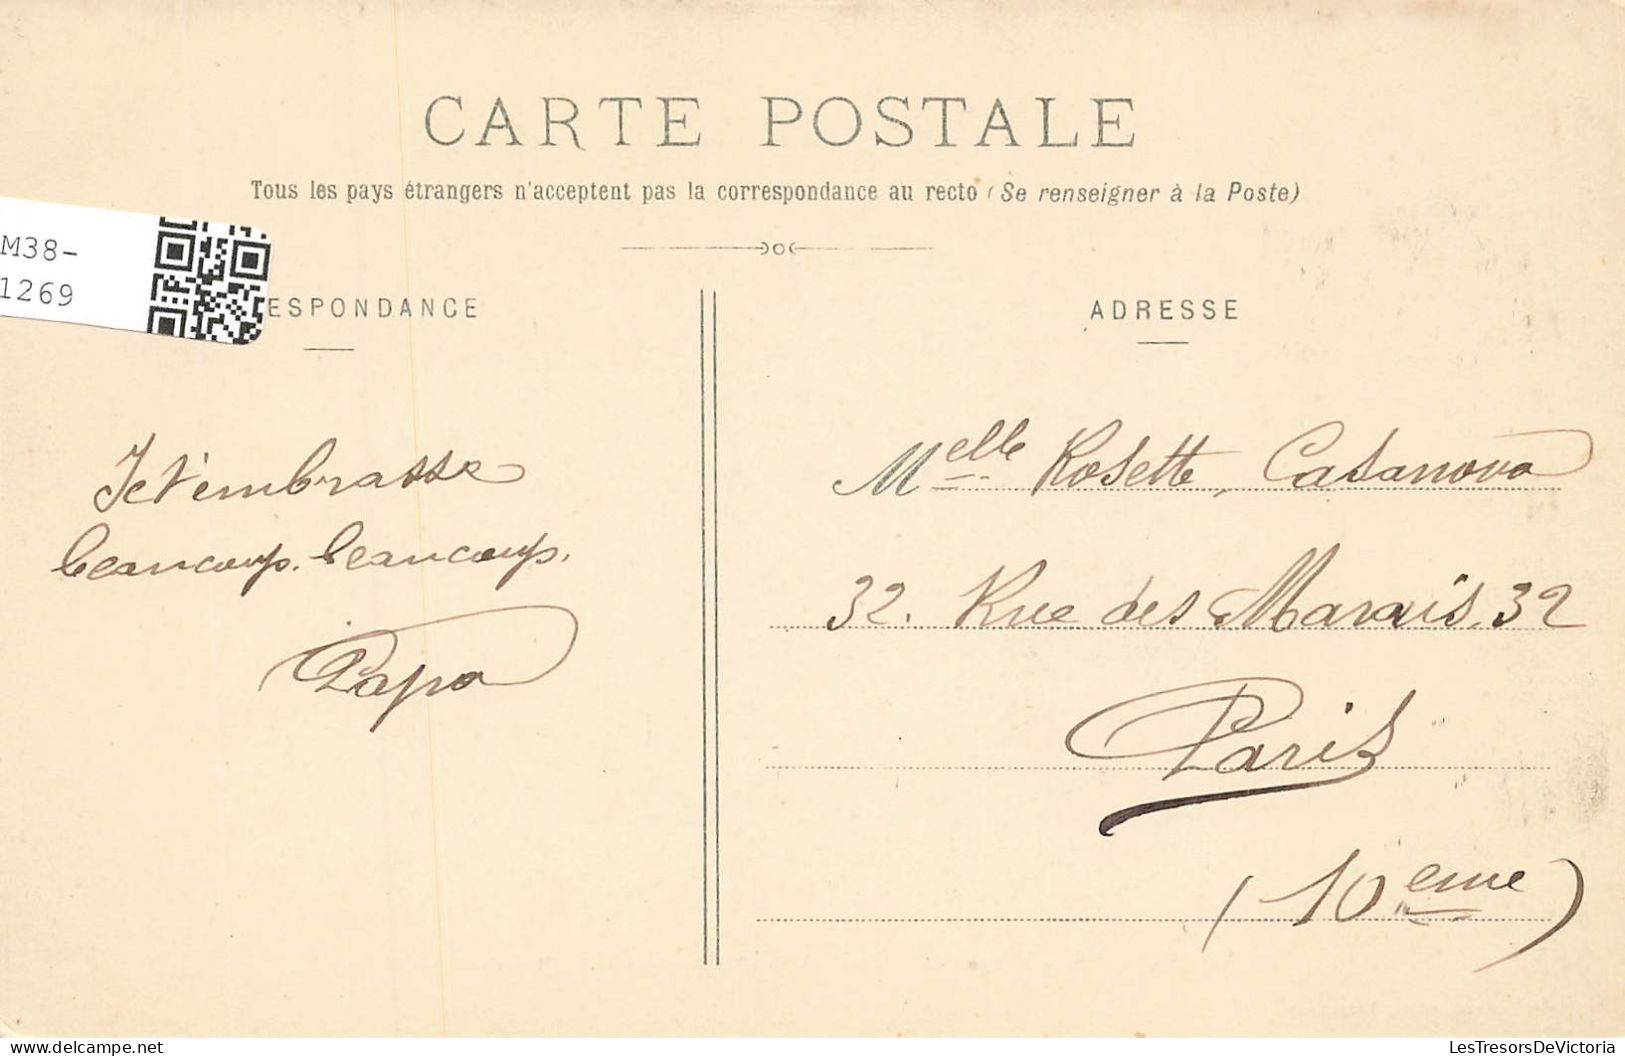 CARTE POSTALE
Tous les pays étrangers n'acceptent pas la correspondance au recto (Se renseigner à la Poste)
M38-
1269
ESPONDANCE
ADRESSE
Je t'embrasse
beaucoup. beaucoup.
Papa
Melle Rosette, Casanova
32. Rue des Marais. 32
Paris
(10eme)
LesTresorsDeVictoria
delcampe.net